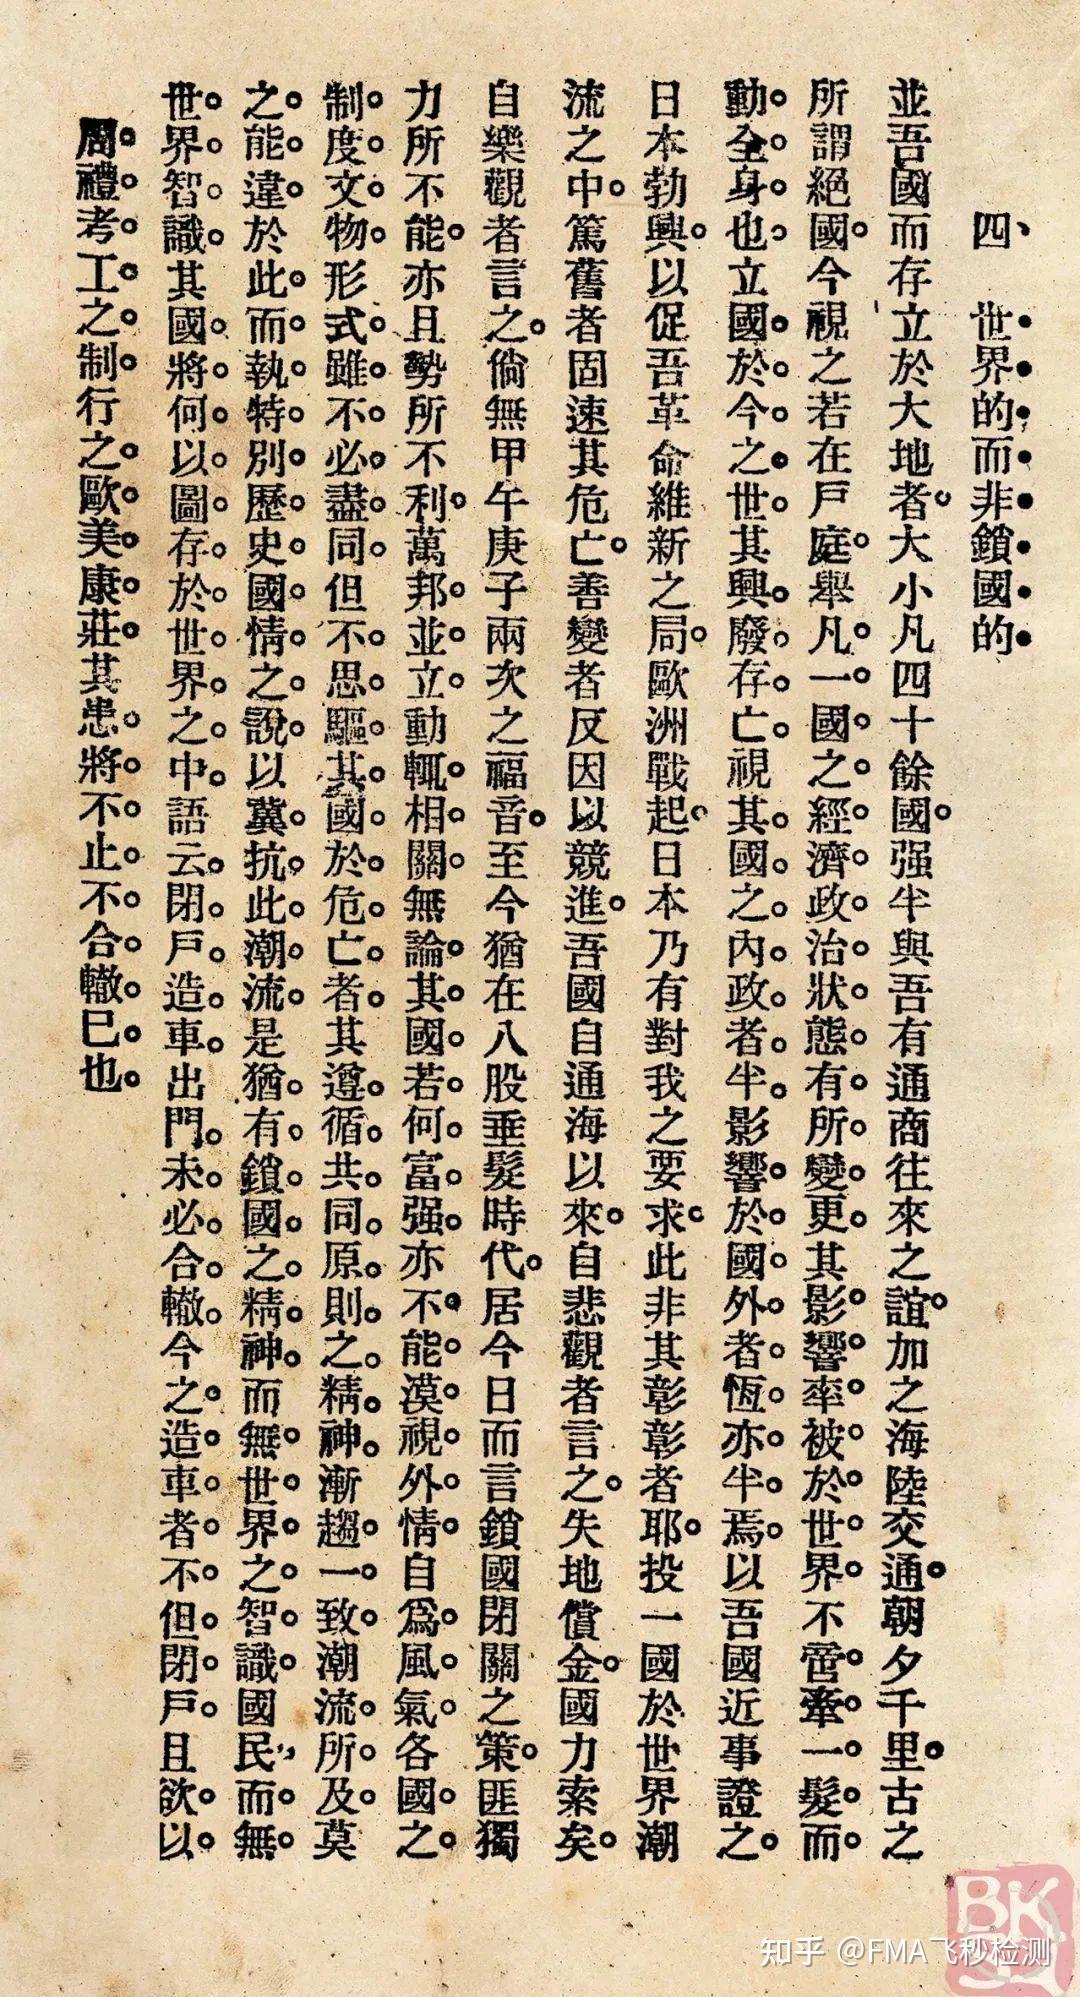 四　世界的而非鎖國的
並吾國而存立於大地者。大小凡四十餘國。强半與吾有通商往來之誼。加之海陸交通。朝夕千里。古之
所謂絕國。今視之若在戶庭。舉凡一國之經濟政治狀態有所變更。其影響率被於世界。不啻牽一髮而
動全身也。立國於今之世。其興廢存亡。視其國之內政者半。影響於國外者恆亦半焉。以吾國近事證之。
日本勃興。以促吾革命維新之局。歐洲戰起。日本乃有對我之要求。此非其彰彰者耶。投一國於世界潮
流之中。篤舊者固速其危亡。善變者反因以競進。吾國自通海以來。自悲觀者言之。失地償金。國力索矣。
自樂觀者言之。倘無甲午庚子兩次之福音。至今猶在八股垂髮時代。居今日而言鎖國閉關之策。匪獨
力所不能。亦且勢所不利。萬邦並立。動輒相關。無論其國若何富强。亦不能漠視外情。自爲風氣。各國之
制度文物。形式雖不必盡同。但不思驅其國於危亡者。其遵循共同原則之精神。漸趨一致。潮流所及。莫
之能違。於此而執特別歷史國情之說。以冀抗此潮流。是猶有鎖國之精神。而無世界之智識。國民而無
世界智識。其國將何以圖存於世界之中。語云。閉戶造車。出門未必合轍。今之造車者。不但閉戶。且欲以
周禮考工之制。行之歐美康莊。其患將不止不合轍已也。
知乎 @FMA飞秒检测
BK